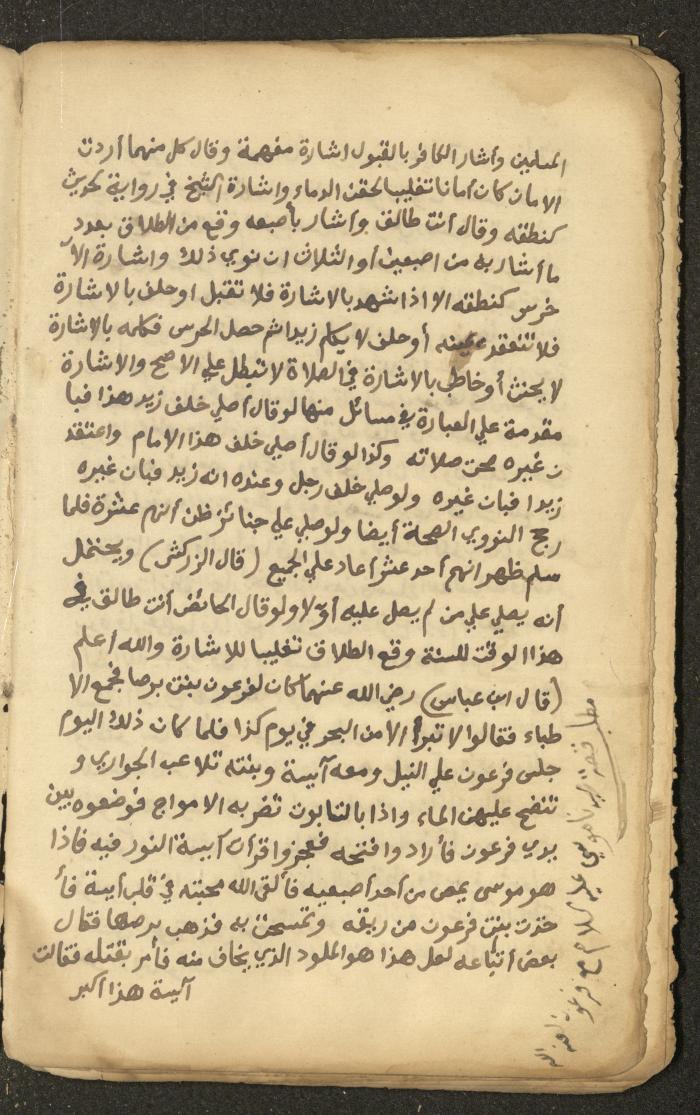 المسلمين وأشار الكافر بالقبول اشارة مفهمة وقال كل منهما أردت
الامان كان أمانا تغليبا لحقن الدماء واشارة الشيخ في رواية الحديث
كنطقه وقال أنت طالق وأشار بأصبعه وقع من الطلاق بعدد
ما أشار به من اصبعين أو الثلاث ان نوي ذلك واشارة الأ
خرس كنطقه الا اذا شهد بالاشارة فلا تقبل او حلف بالاشارة
فلا تنعقد يمينه أو حلف لا يكلم زيدا ثم حصل الخرس فكلمه بالاشارة
لا يحنث أو خاطب بالاشارة في الصلاة لا تبطل علي الاصح والاشارة
مقدمة علي العبارة في مسائل منها لو قال أصلي خلف زيد هذا فبا
ن غيره صحت صلاته وكذا لو قال أصلي خلف هذا الامام واعتقد
زيدا فبان غيره ولو صلي خلف رجل وعنده انه زيد فبان غيره
رجح النووي الصحة أيضا ولو صلي علي جنائز ظن أنهم عشرة فلما
سلم ظهر انهم أحد عشر أعاد علي الجميع (قال الزركشي) ويحتمل
أنه يصلي علي من لم يصل عليه أولا ولو قال الحائض أنت طالق في
هذا الوقت للسنة وقع الطلاق تغليبا للاشارة والله أعلم
(قال ابن عباس) رضي الله عنهما كان لفرعون بنت برصا فجمع الا
طباء فقالوا لا تبرأ الا من البحر في يوم كذا فلما كان ذلك اليوم
جلس فرعون علي النيل ومعه آسية وبنته تلاعب الجواري و
تنضح عليهن الماء واذا بالتابوت تضربه الامواج فوضعوه بين
يدي فرعون فأراد وافتحه فعجزوا قرأت آسية النور فيه فاذا
هو موسى يمص من أحد أصبعيه فألقى الله محبته في قلب آسية فأ
خذت بنت فرعون من ريقه وتمسحت به فذهب برصها فقال
بعض أتباعه لعل هذا هو الملود الذي يخاف منه فأمر بقتله فقالت
آسية هذا أكبر
مطلب قصة سيدنا موسي عليه السلام مع فرعون